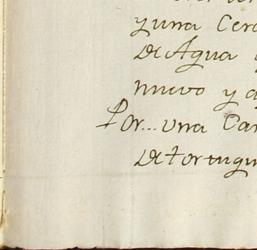 y una Cer
de Agua
nuevo y a
Por... una Ca
de tortugu